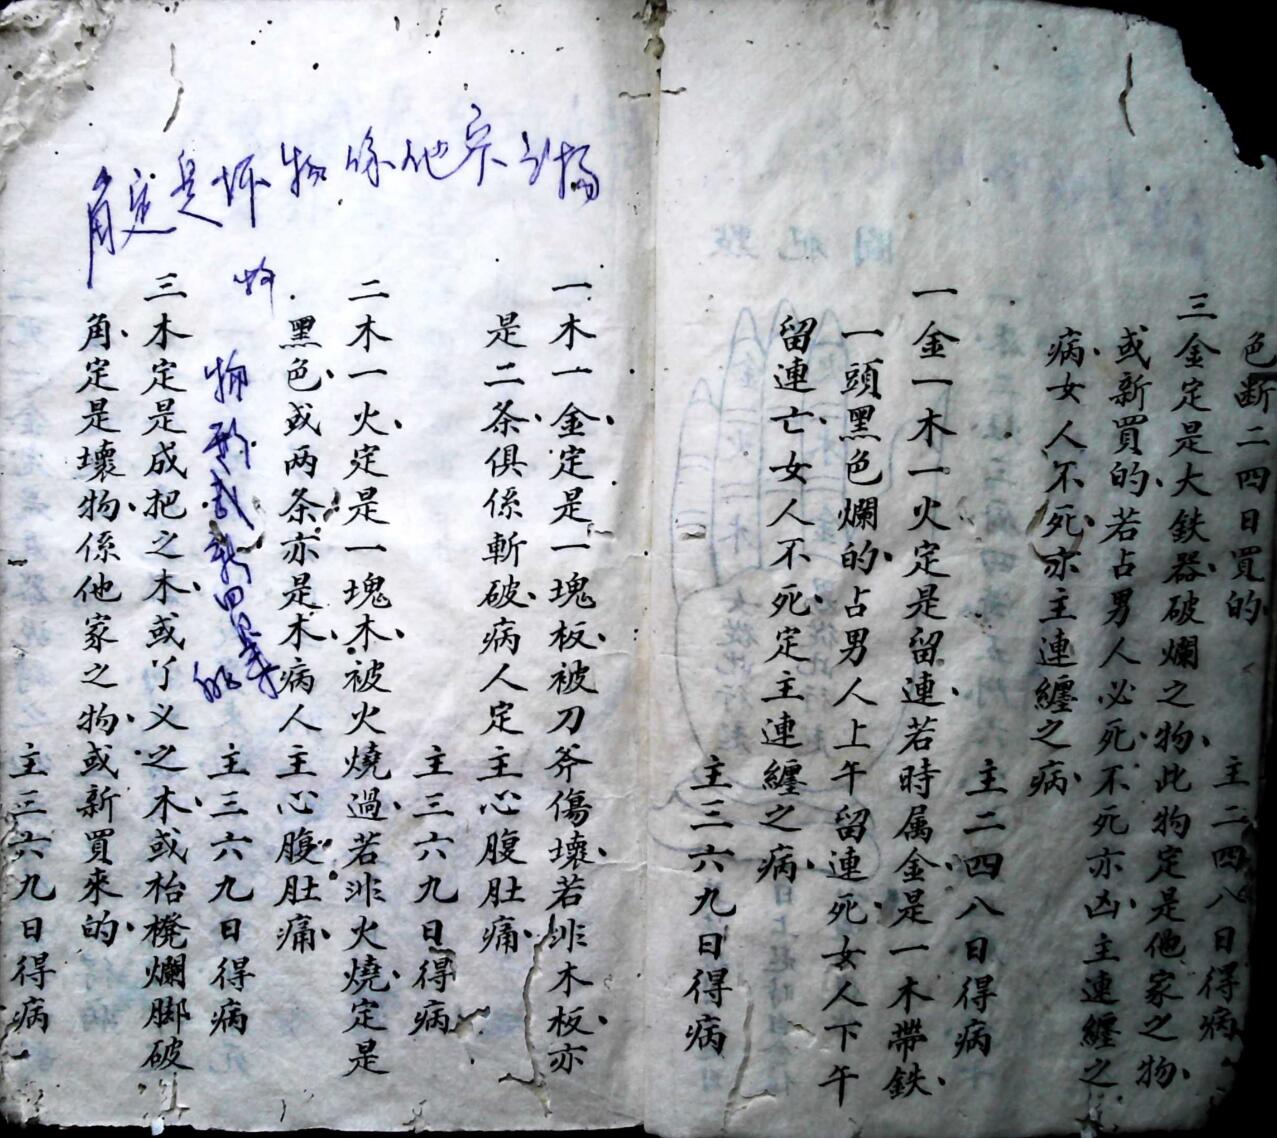 色断二四日買的 主二四八日得病
三金定是大鉄器破爛之物此物定是他家之物
或新買的若占男人必死不死亦凶主連纏之
病女人不死亦主連纏之病
主二四八日得病
一金一木一火定是留連若時属金是一木帶鉄
一頭黑色爛的占男人上午留連死女人下午
留連亡女人不死定主連纏之病
主三六九日得病
一木一金定是一塊板被刀斧傷壞若非木板亦
是二条俱係斬破病人定主心腹肚痛
主三六九日得病
二木一火定是一塊木被火燒過若非火燒定是
黑色或两条亦是木病人主心腹肚痛
主三六九日得病
三木定是成把之木或丫义之木或枱櫈爛脚破
角定是壞物係他家之物或新買來的
主三六九日得病
角定是坏物係他家
物